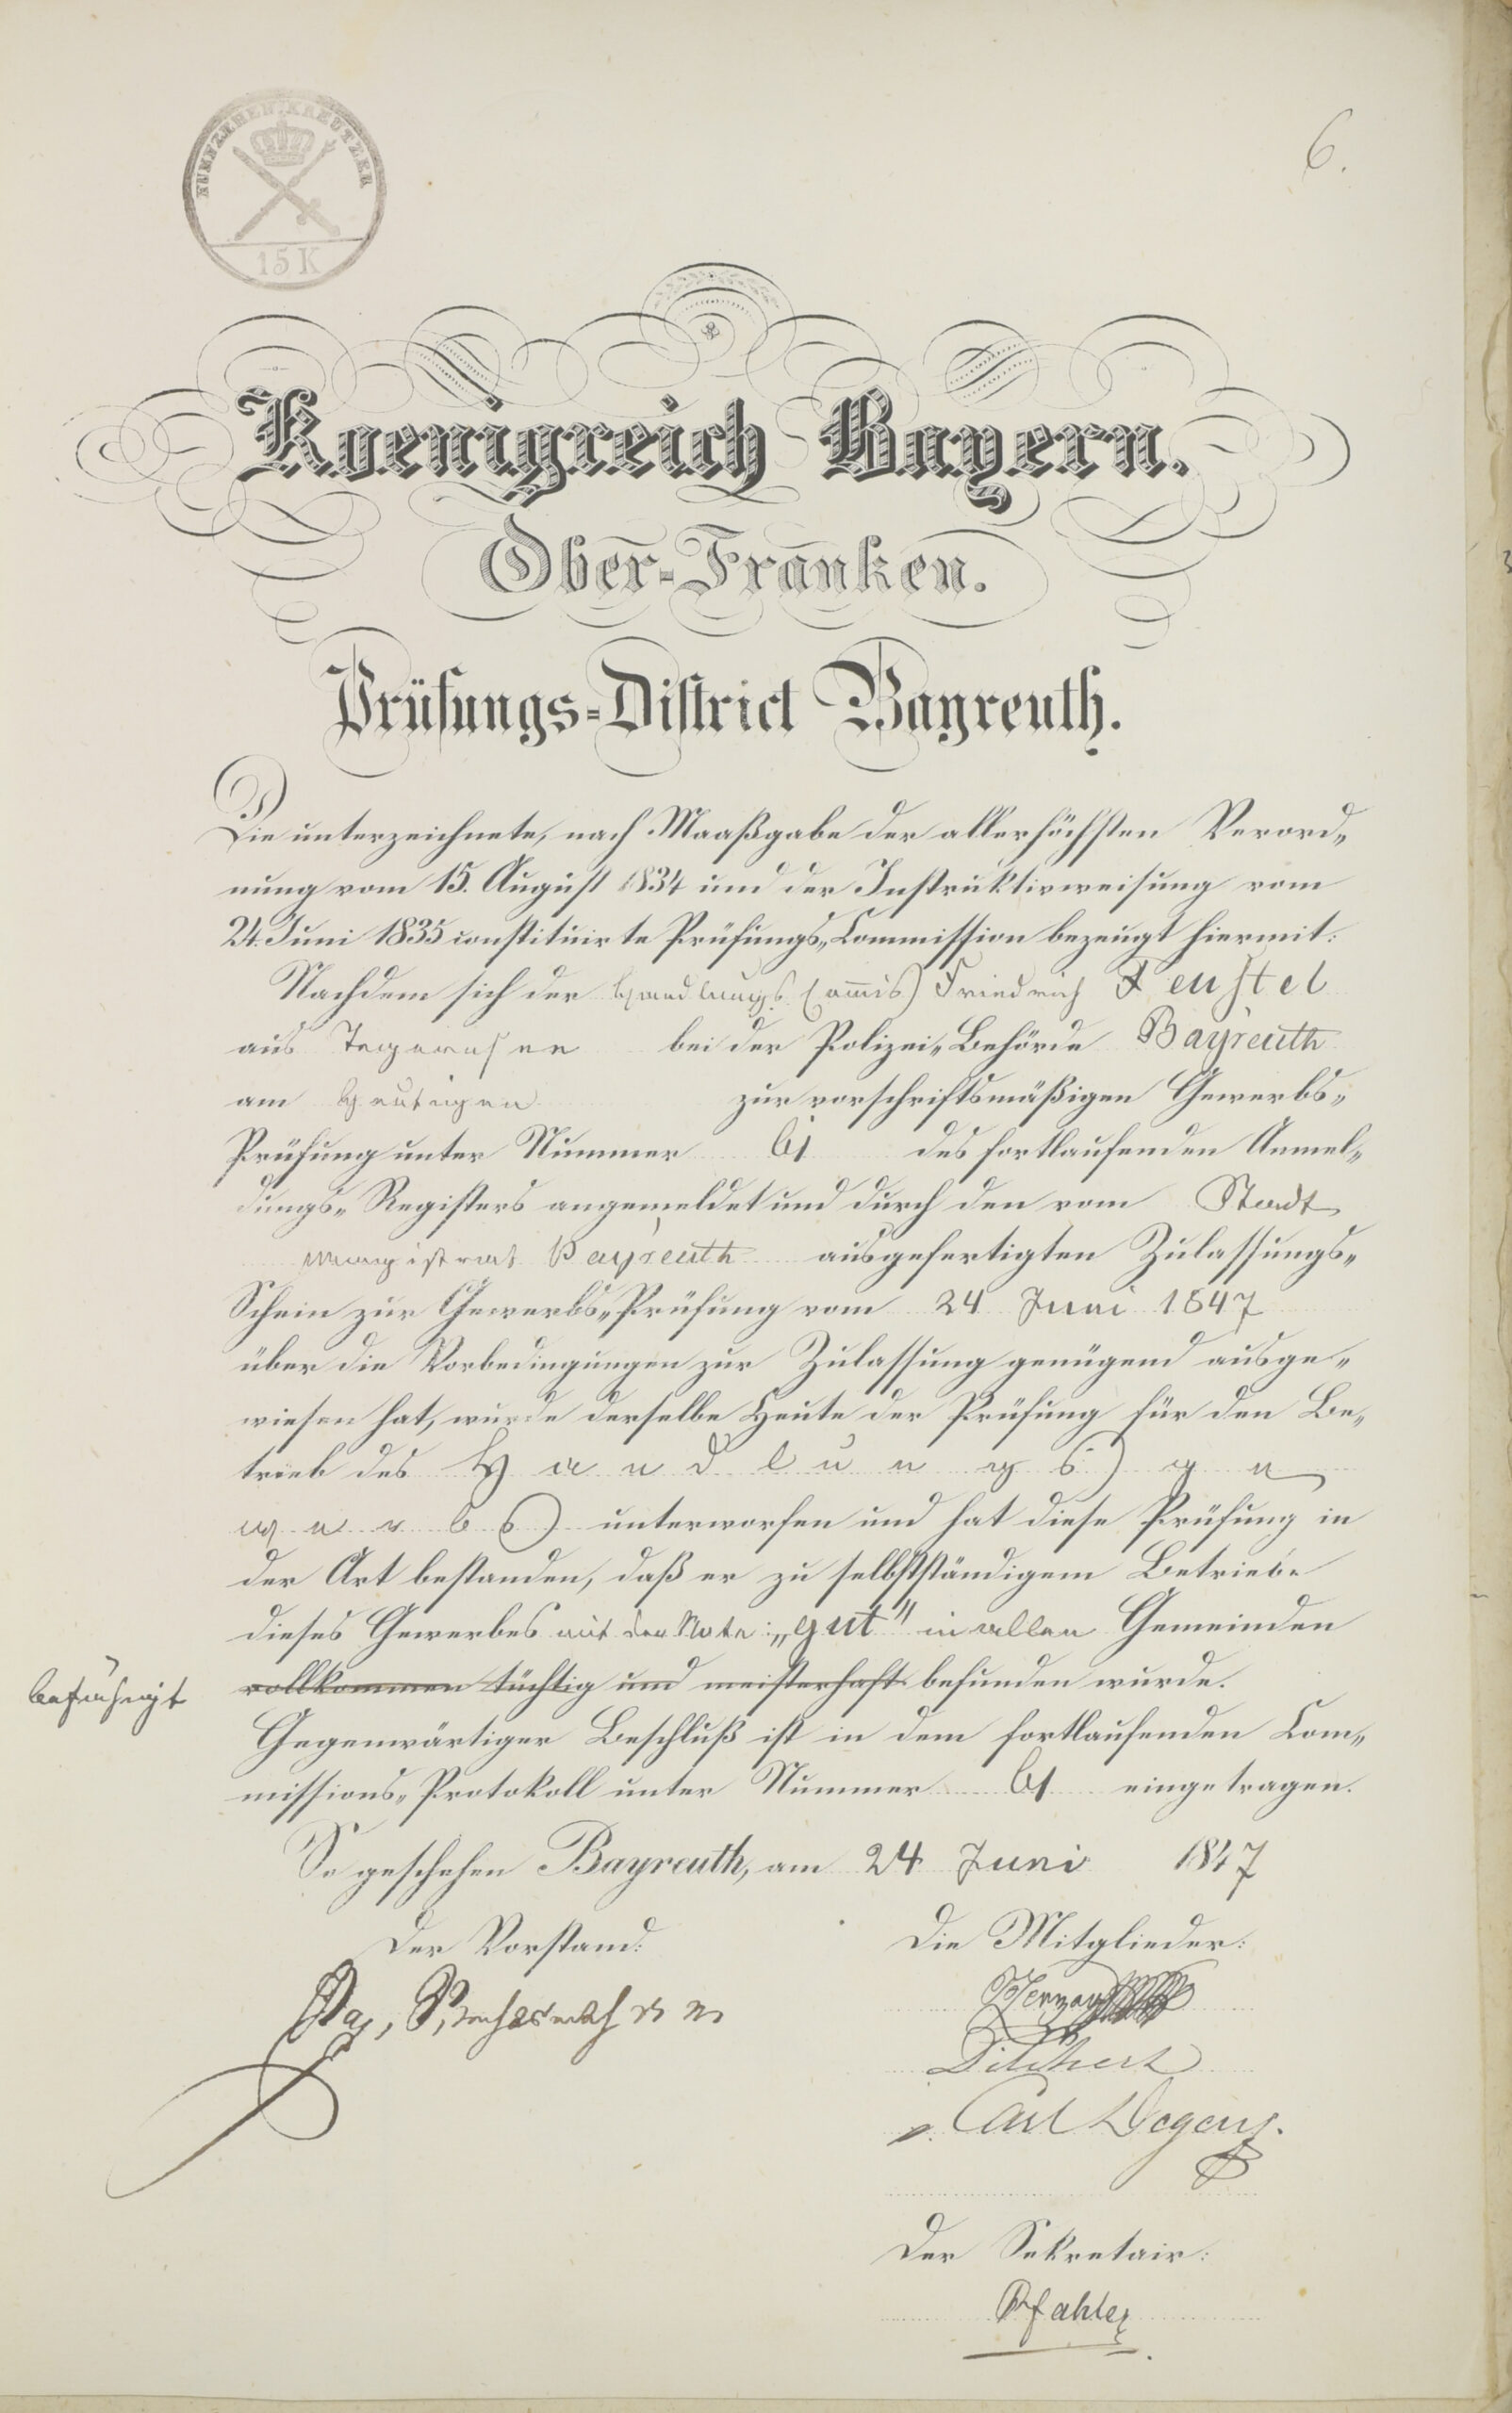 FUNFZEHEN KREUTZER
15 K
6.
Koenigreich Bayern.
Ober-Franken.
Prüfungs-District Bayreuth.
Die unterzeichnete, nach Maaßgabe der allerhöchsten Verord-
nung vom 15. August 1834 und der Instruktivweisung vom
24. Juni 1835 constituirte Prüfungs-Commission bezeugt hiermit:
Nachdem sich der Handlungs Commis Friedrich Feustel
aus Tegernsee bei der Polizei-Behörde Bayreuth
am heutigen zur vorschriftsmäßigen Gewerbs-
Prüfung unter Nummer des fortlaufenden Anmel-
dungs-Registers angemeldet und durch den vom Stadt
magistrat Bayreuth ausgefertigten Zulassungs-
Schein zur Gewerbs-Prüfung vom 24 Juni 1847
über die Vorbedingungen zur Zulassung genügend ausge-
wiesen hat, wurde derselbe heute der Prüfung für den Be-
trieb des Handlungs ge
werbs unterworfen und hat diese Prüfung in
der Art bestanden, daß er zu selbstständigem Betriebe
dieses Gewerbes mit der Note: „gut" in allen Gemeinden
befähigt vollkommen tüchtig und meisterhaft befunden wurde.
Gegenwärtiger Beschluß ist in dem fortlaufenden Com-
missions-Protokoll unter Nummer eingetragen.
So geschehen Bayreuth, am 24 Juni 1847
Der Vorstand:
Die Mitglieder:
Carl
Der Sekretair:
Pfahler